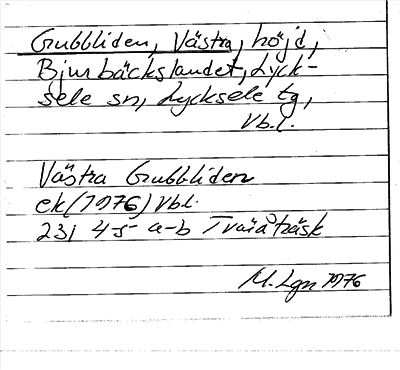 Grubbliden, Västra, höjd,
Bjurbäckslandet, Lyck-
sele sn, Lycksele tg,
Vb.l.
Västra Grubbliden
ek (1976) Vbl.
23I 4-5 a-b Tväråträsk
M. Lgn 1976